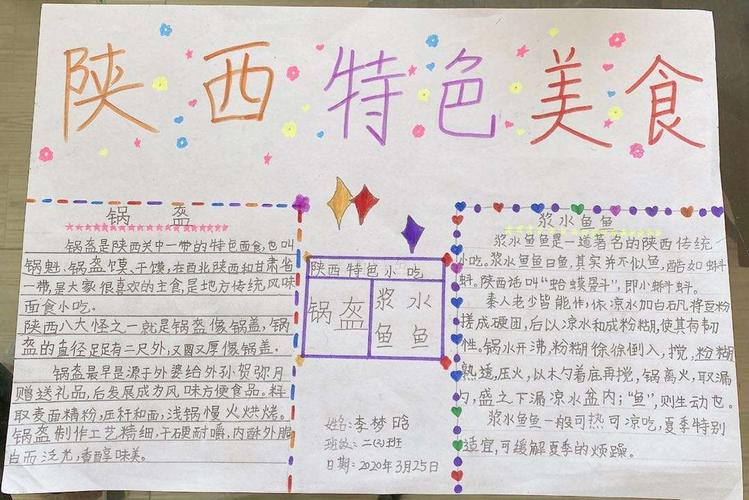 陕西特色美食
锅盔
锅盔是陕西关中一带的特色面食,也叫
锅魁、锅盔馍、干馍,在西北陕西和甘肃省
一带是大家很喜欢的主食,是地方传统风味
面食小吃。
陕西八大怪之一就是锅盔像锅盖,锅
盔的直径足足有二尺外,又圆又厚像锅盖。
锅盔最早是源于外婆给外孙贺弥月
赠送礼品,后发展成为风味方便食品。料
取麦面精粉,压秆和面,浅锅慢火烘烤。
锅盔制作工艺精细,干硬耐嚼,内酥外脆
白而泛光,香醇味美。
陕西特色小吃
锅盔
浆水
鱼鱼
姓名:李梦晗
班级:二(3)班
日期:2020年3月25日
浆水鱼鱼
浆水鱼鱼是一道著名的陕西传统
小吃。浆水鱼鱼曰鱼,其实并不似鱼,酷如蝌
蚪。陕西话叫“蛤蟆骨斗”,即小蝌蚪。
秦人老少皆能作:依凉水加白矾将豆粉
搓成硬团,后以凉水和成粉糊,使其有韧
性。锅水开沸,粉糊徐徐倒入,搅,粉糊
熟透,压火,以木勺着底再搅,锅离火,取漏
勺,盛之下漏凉水盆内;“鱼”,则生动也。
浆水鱼鱼一般可热可凉吃,夏季特别
适宜,可缓解夏季的烦躁。